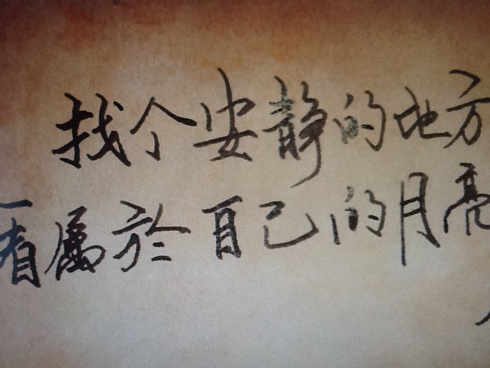 找个安静的地方
看属於自己的月亮